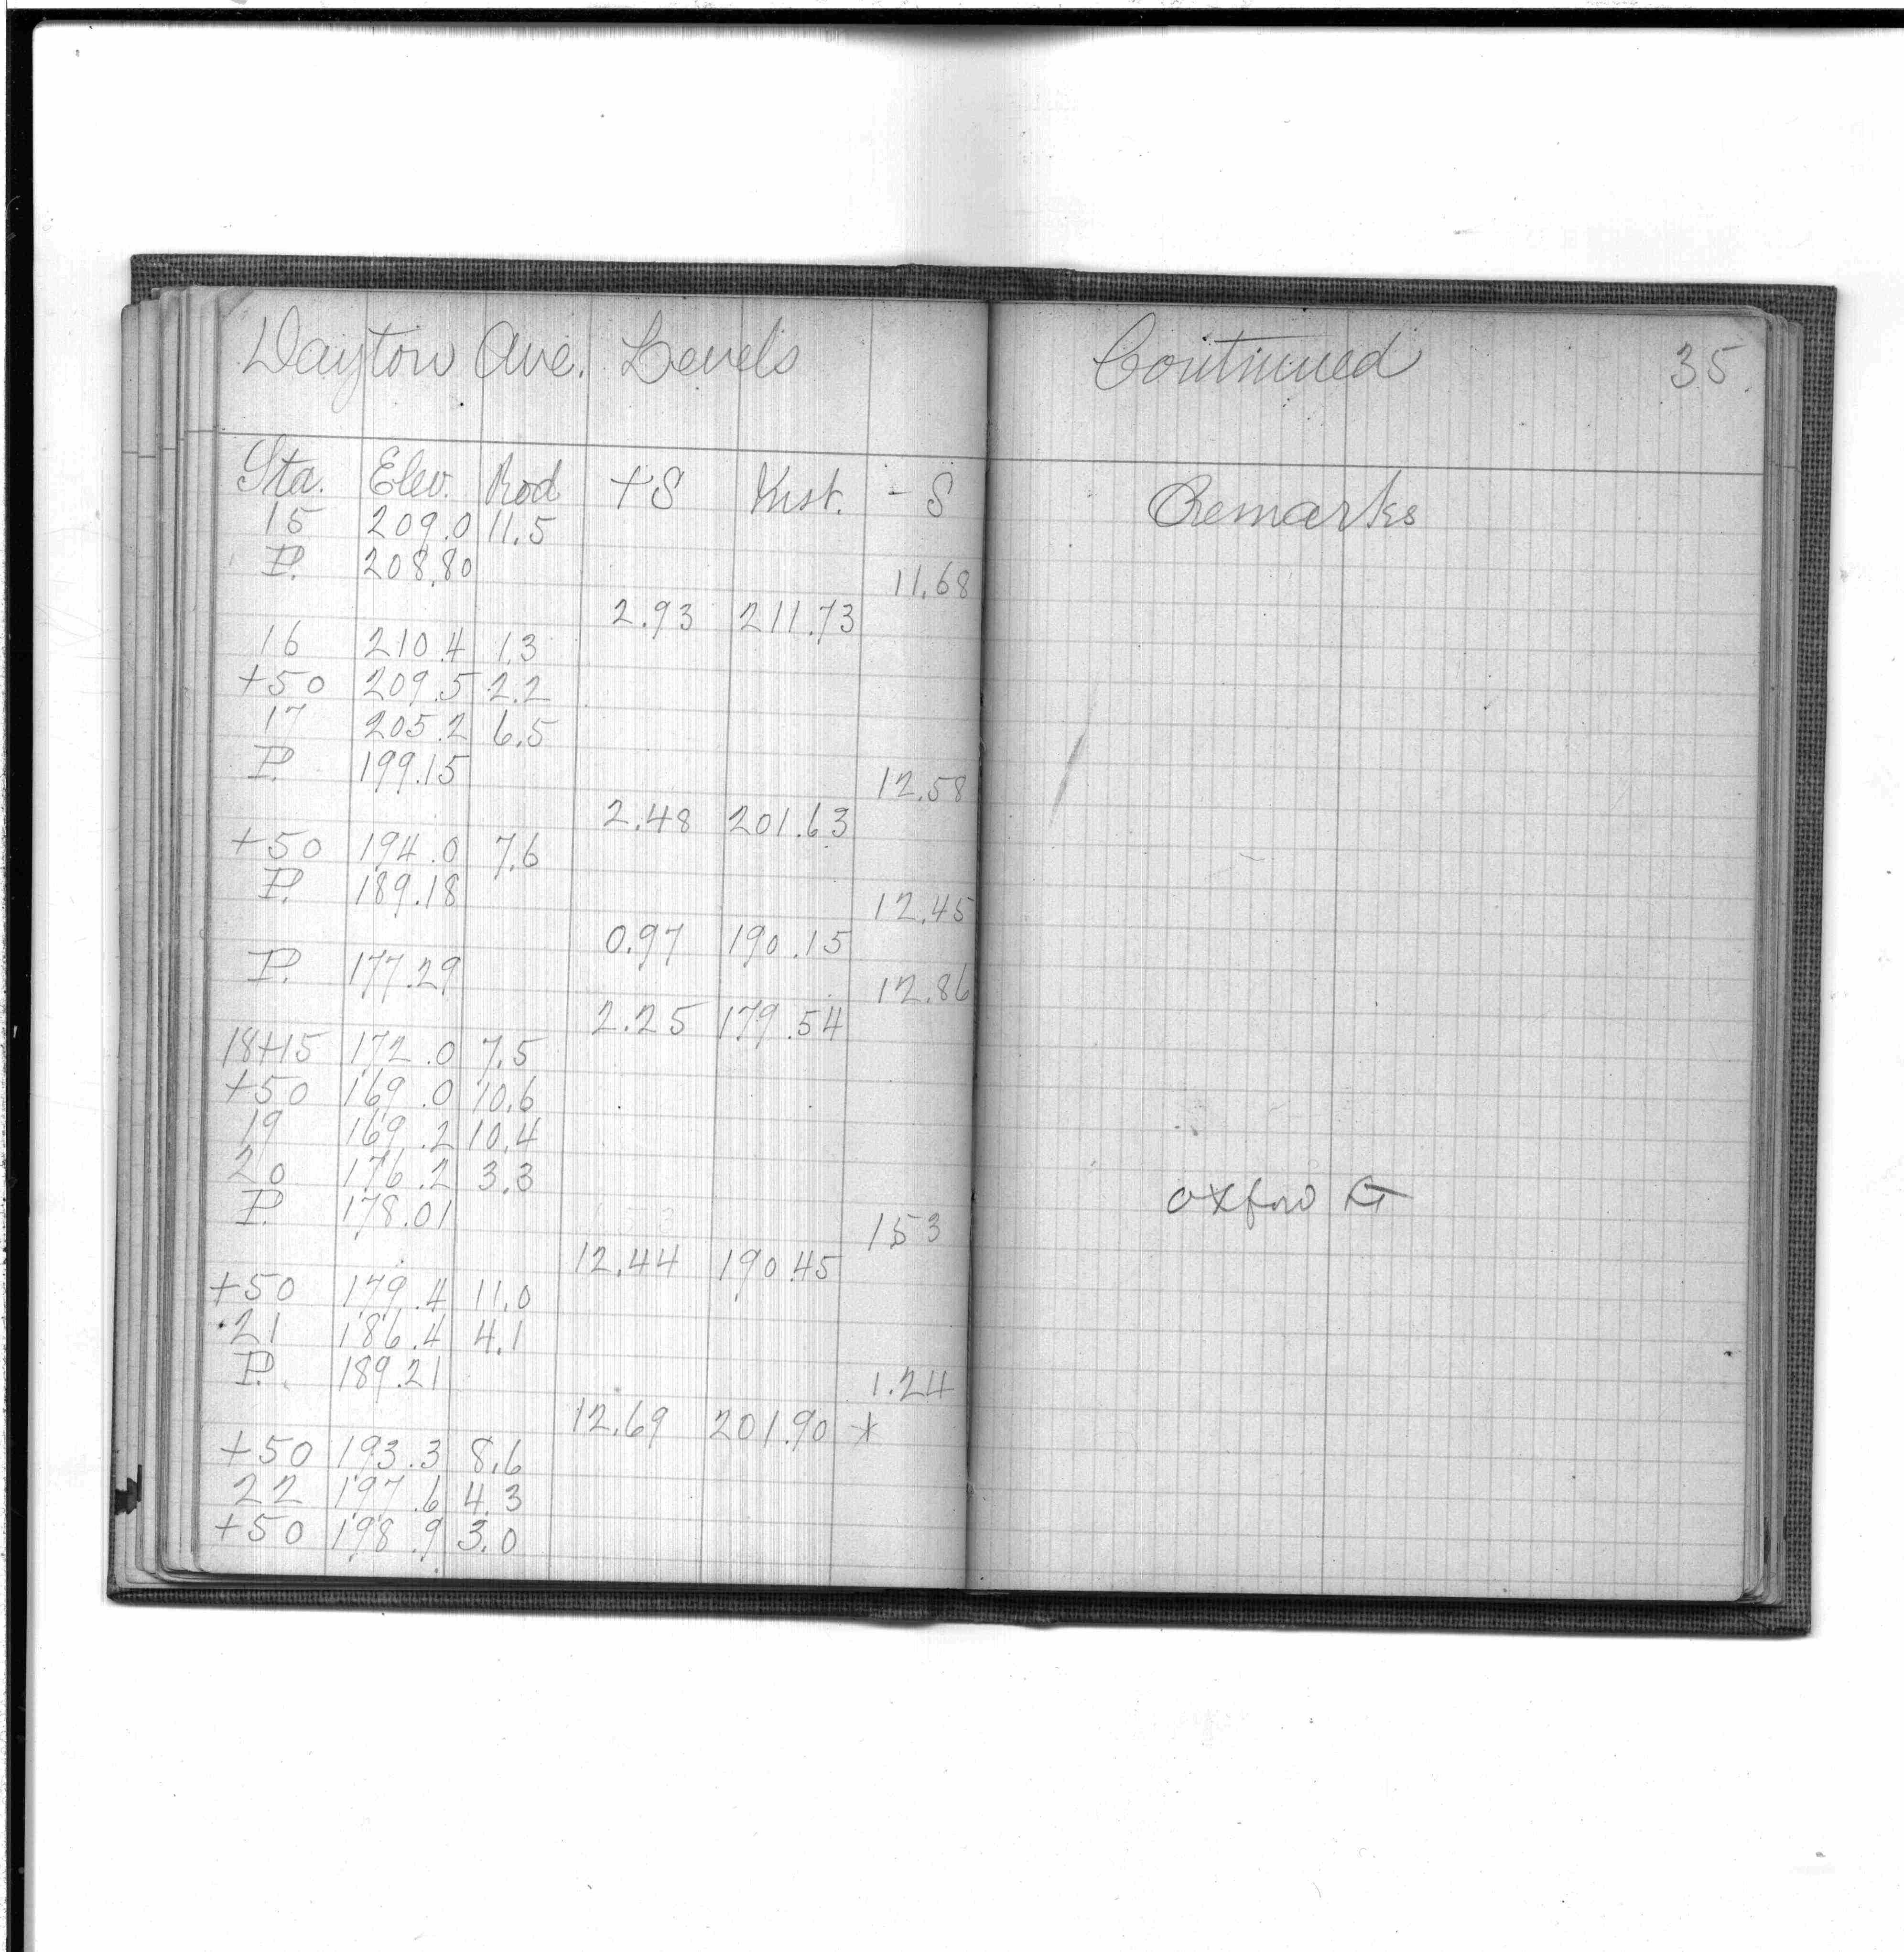 Dayton Ave. Levels Continued 35.
Sta. Elev. Rod +S Inst. -S Remarks
15 209.0 11.5
P. 208.80 11.68
2.93 211.73
16 210.4 1.3
+50 209.5 2.2
17 205.2 6.5
P. 199.15 12.58
2.48 201.63
+50 194.0 7.6
P. 189.18 12.45
0.97 190.15
P. 177.29 12.86
2.25 179.54
18+15 172.0 7.5
+50 169.0 10.6
19 169.2 10.4
20 176.2 3.3 Oxford St
P. 178.01 1.53
12.44 190.45
+50 179.4 11.0
21 186.4 4.1
P. 189.21 1.24
12.69 201.90 *
+50 193.3 8.6
22 197.6 4.3
+50 198.9 3.0